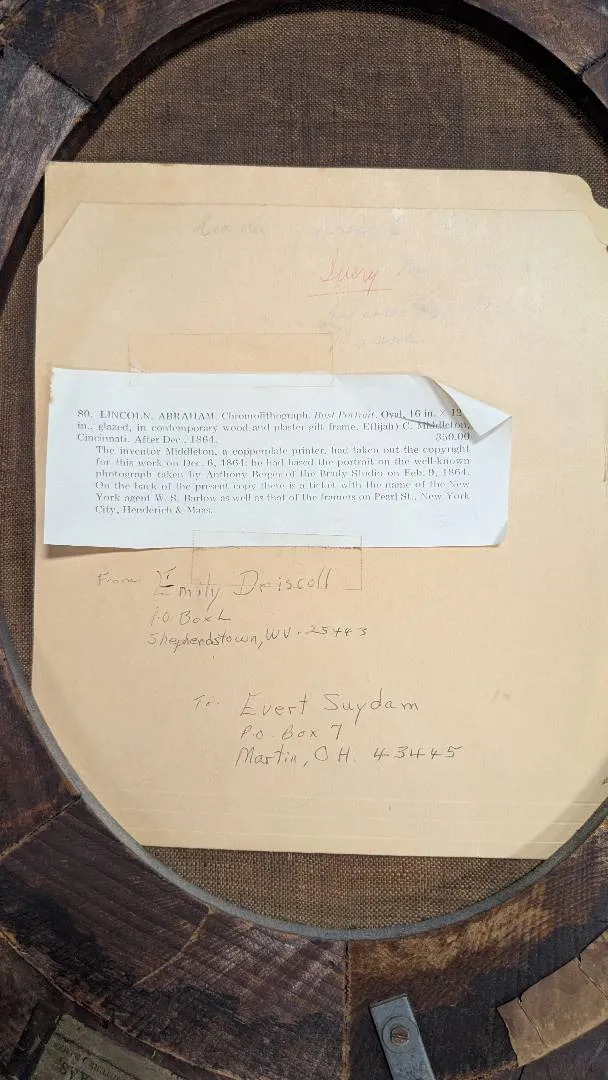 Query
80. LINCOLN, ABRAHAM. Chromolithograph. Bust Portrait. Oval, 16 in. × 12
in., glazed, in contemporary wood and plaster gilt frame. E(lijah) C. Middleton,
Cincinnati. After Dec., 1864. 350.00
The inventor Middleton, a copperplate printer, had taken out the copyright
for this work on Dec. 6, 1864; he had based the portrait on the well-known
photograph taken by Anthony Berger of the Brady Studio on Feb. 9, 1864.
On the back of the present copy there is a ticket with the name of the New
York agent W. S. Barlow as well as that of the framers on Pearl St., New York
City, Henderich & Maas.
From Emily Driscoll
P.O. Box L
Shepherdstown, WV. 25443
To: Evert Suydam
P.O. Box 7
Martin, OH. 43445